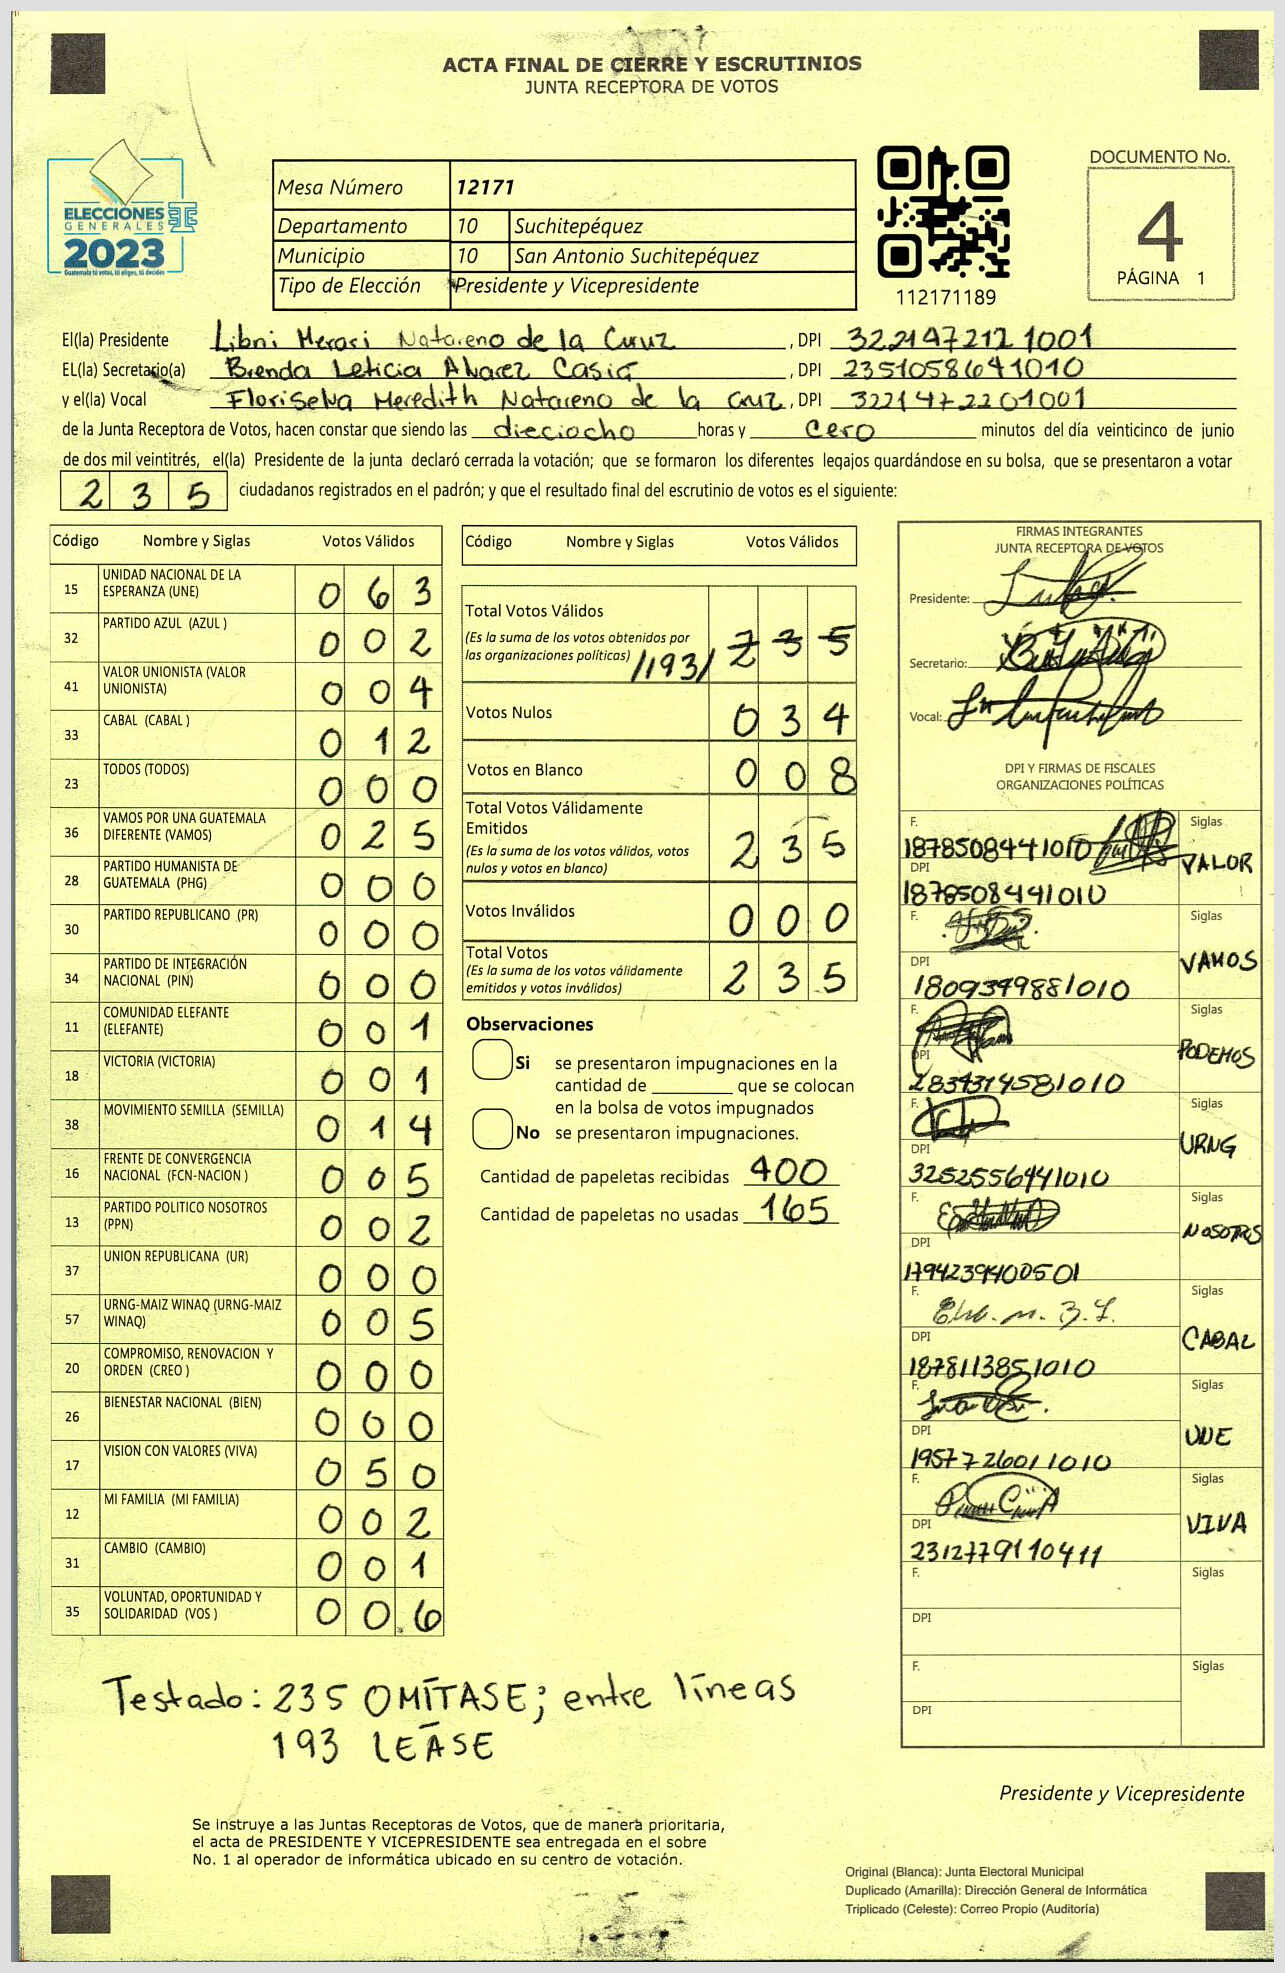 ACTA FINAL DE CIERRE Y ESCRUTINIOS
JUNTA RECEPTORA DE VOTOS
ELECCIONES
GENERALES
2023
Guatemala tú votas, tú eliges, tú decides
Mesa Número 12171
Departamento 10 Suchitepéquez
Municipio 10 San Antonio Suchitepéquez
Tipo de Elección Presidente y Vicepresidente
112171189
DOCUMENTO No.
4
PÁGINA 1
El(la) Presidente Libni Merari Natareno de la Cruz, DPI 3221472121001
EL(la) Secretario(a) Brenda Leticia Alvarez Casia, DPI 2351058641010
y el(la) Vocal Floriselva Meredith Natareno de la Cruz, DPI 3221472201001
de la Junta Receptora de Votos, hacen constar que siendo las dieciocho horas y cero minutos del día veinticinco de junio
de dos mil veintitrés, el(la) Presidente de la junta declaró cerrada la votación; que se formaron los diferentes legajos guardándose en su bolsa, que se presentaron a votar
235 ciudadanos registrados en el padrón; y que el resultado final del escrutinio de votos es el siguiente:
Código Nombre y Siglas Votos Válidos
15 UNIDAD NACIONAL DE LA ESPERANZA (UNE) 063
32 PARTIDO AZUL (AZUL ) 002
41 VALOR UNIONISTA (VALOR UNIONISTA) 004
33 CABAL (CABAL ) 012
23 TODOS (TODOS) 000
36 VAMOS POR UNA GUATEMALA DIFERENTE (VAMOS) 025
28 PARTIDO HUMANISTA DE GUATEMALA (PHG) 000
30 PARTIDO REPUBLICANO (PR) 000
34 PARTIDO DE INTEGRACIÓN NACIONAL (PIN) 000
11 COMUNIDAD ELEFANTE (ELEFANTE) 001
18 VICTORIA (VICTORIA) 001
38 MOVIMIENTO SEMILLA (SEMILLA) 014
16 FRENTE DE CONVERGENCIA NACIONAL (FCN-NACION ) 005
13 PARTIDO POLITICO NOSOTROS (PPN) 002
37 UNION REPUBLICANA (UR) 000
57 URNG-MAIZ WINAQ (URNG-MAIZ WINAQ) 005
20 COMPROMISO, RENOVACION Y ORDEN (CREO ) 000
26 BIENESTAR NACIONAL (BIEN) 000
17 VISION CON VALORES (VIVA) 050
12 MI FAMILIA (MI FAMILIA) 002
31 CAMBIO (CAMBIO) 001
35 VOLUNTAD, OPORTUNIDAD Y SOLIDARIDAD (VOS ) 006
Código Nombre y Siglas Votos Válidos
Total Votos Válidos
(Es la suma de los votos obtenidos por
las organizaciones políticas) /193/ 235
Votos Nulos 034
Votos en Blanco 008
Total Votos Válidamente
Emitidos
(Es la suma de los votos válidos, votos
nulos y votos en blanco) 235
Votos Inválidos 000
Total Votos
(Es la suma de los votos válidamente
emitidos y votos inválidos) 235
Observaciones
Si se presentaron impugnaciones en la
cantidad de ________ que se colocan
en la bolsa de votos impugnados
No se presentaron impugnaciones.
Cantidad de papeletas recibidas 400
Cantidad de papeletas no usadas 165
FIRMAS INTEGRANTES
JUNTA RECEPTORA DE VOTOS
Presidente:
Secretario:
Vocal:
DPI Y FIRMAS DE FISCALES
ORGANIZACIONES POLÍTICAS
F. 1878508441010 Siglas
DPI 1878508441010 VALOR
F. Siglas
DPI 1809349881010 VAMOS
F. Siglas
DPI 2837314581010 PODEMOS
F. Siglas
DPI 3252556441010 URNG
F. Siglas
DPI 1794239400501 NOSOTROS
F. Siglas
DPI 1878113851010 CABAL
F. Siglas
DPI 1957726011010 UNE
F. Siglas
DPI 2312779110411 VIVA
F. Siglas
DPI
F. Siglas
DPI
Testado: 235 OMÍTASE; entre líneas
193 LEÁSE
Presidente y Vicepresidente
Se instruye a las Juntas Receptoras de Votos, que de manera prioritaria,
el acta de PRESIDENTE Y VICEPRESIDENTE sea entregada en el sobre
No. 1 al operador de informática ubicado en su centro de votación.
Original (Blanca): Junta Electoral Municipal
Duplicado (Amarilla): Dirección General de Informática
Triplicado (Celeste): Correo Propio (Auditoría)